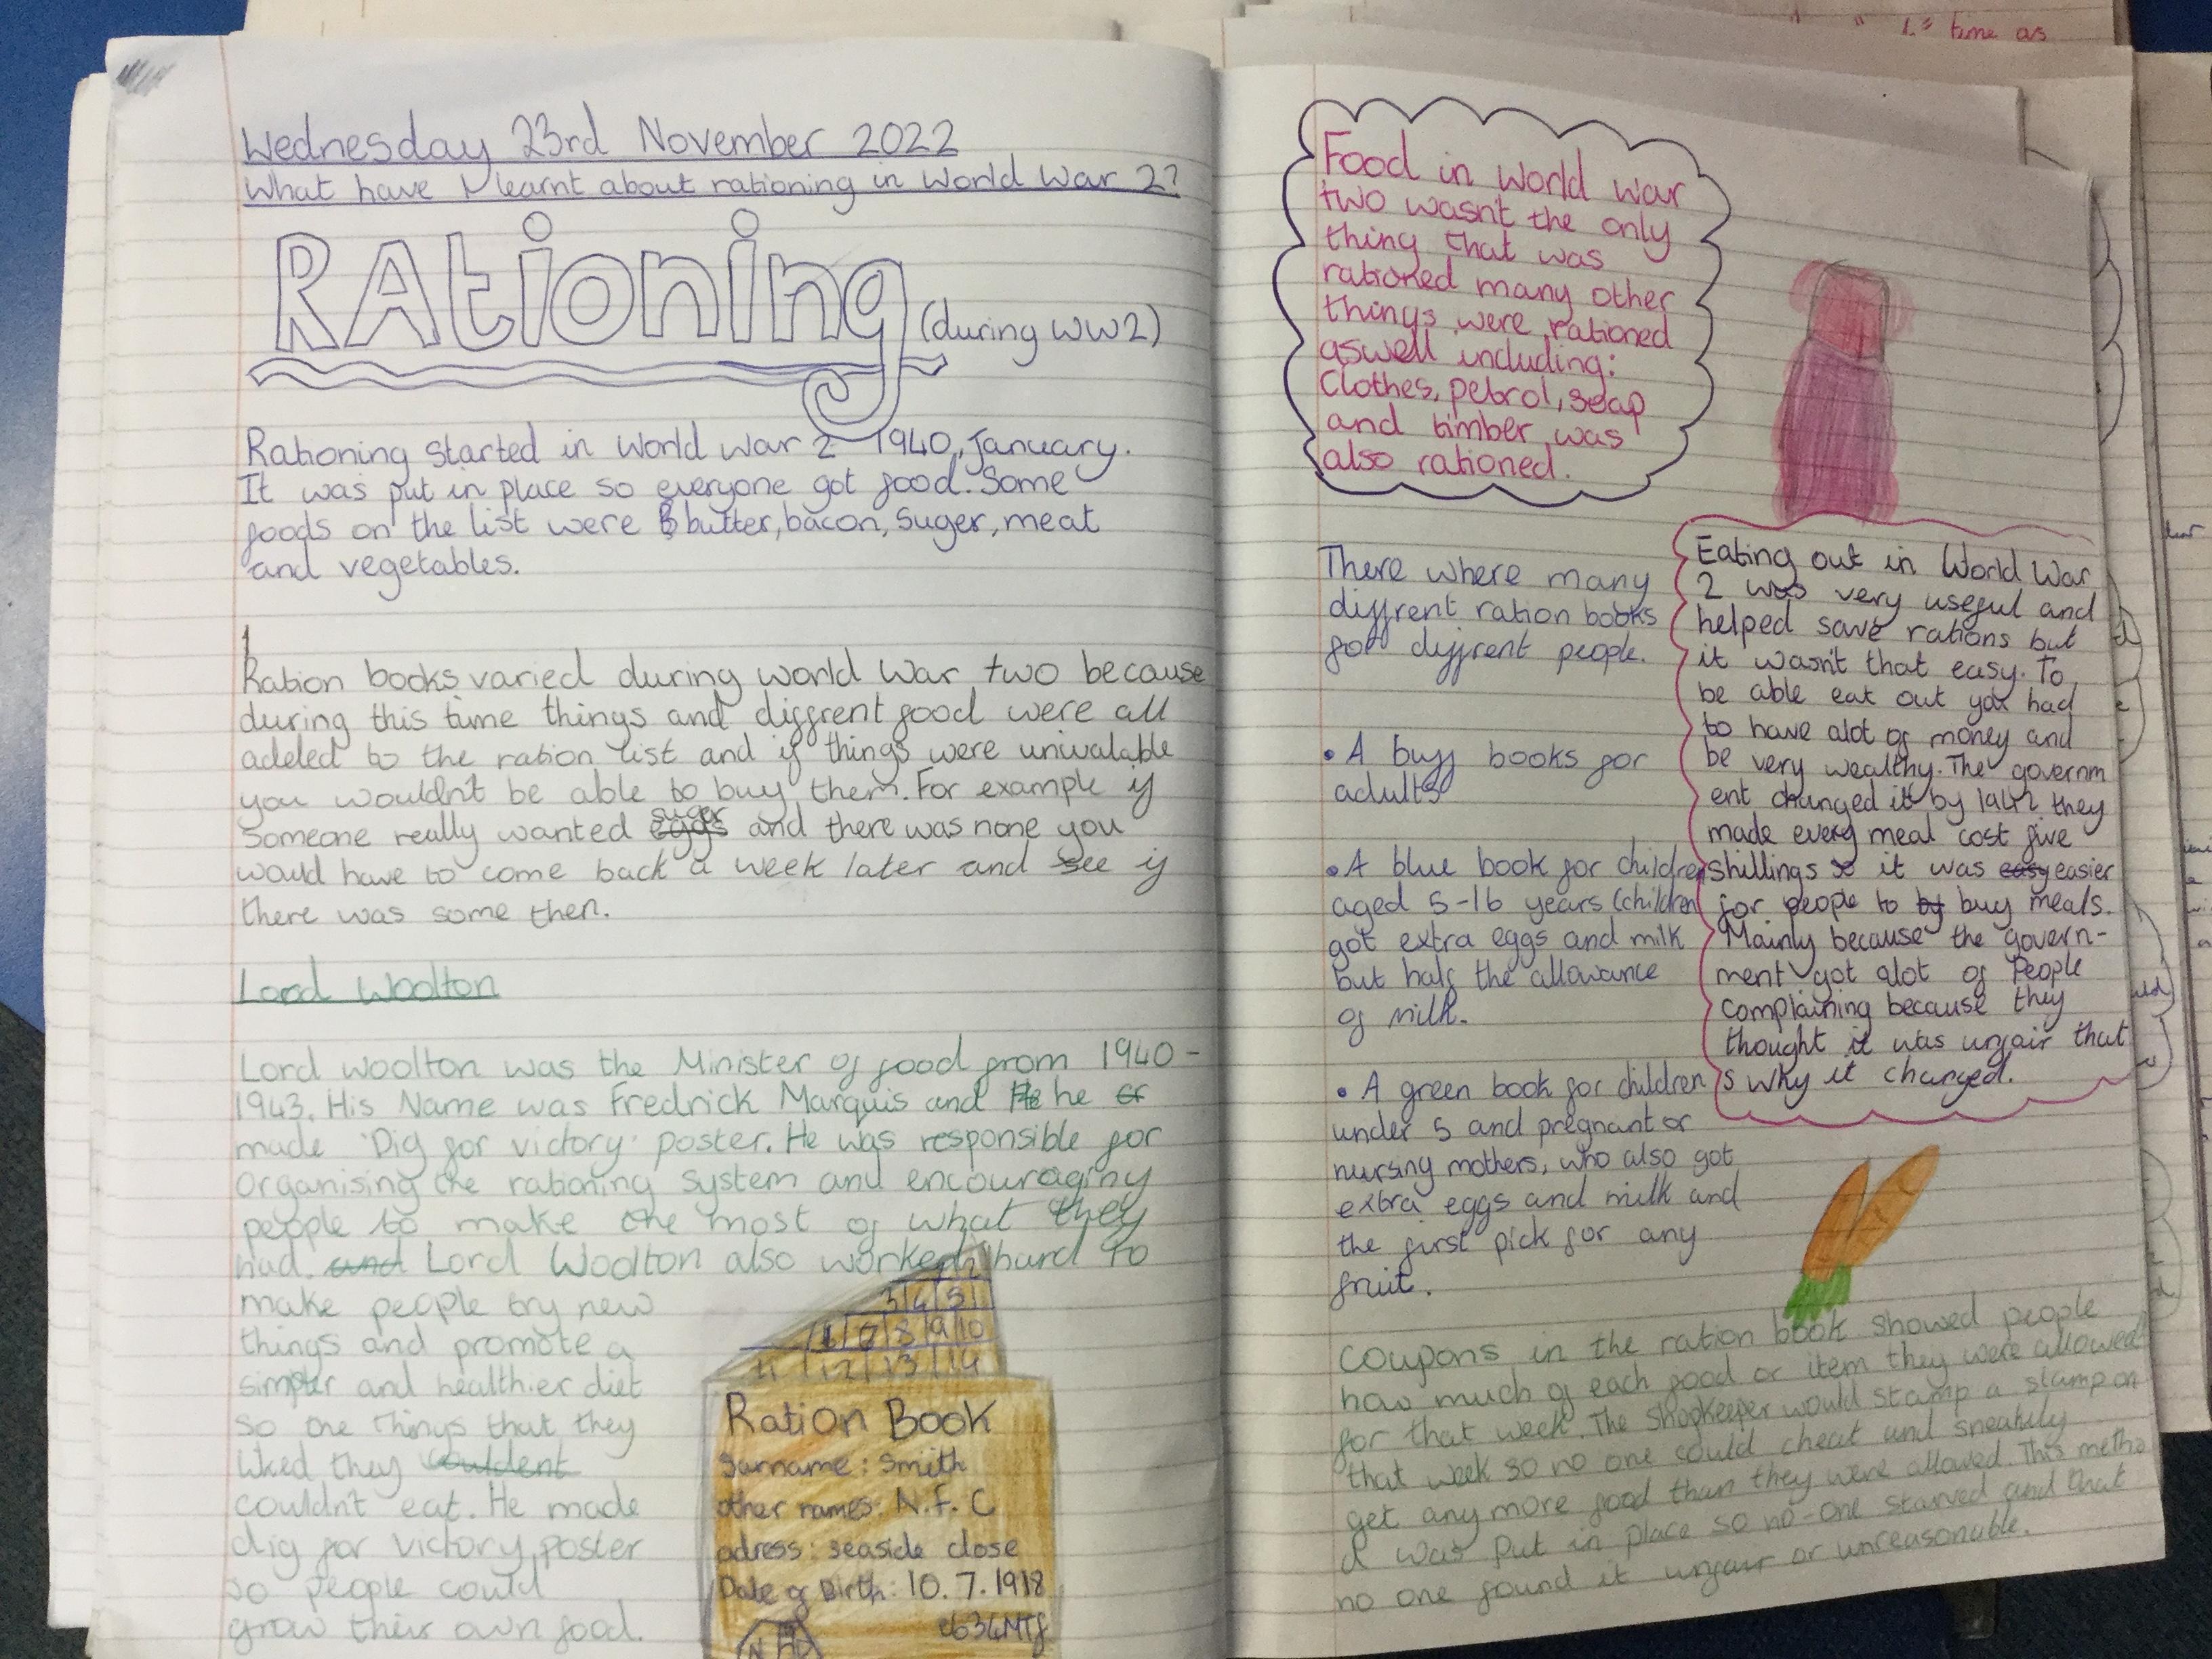 Wednesday 23rd November 2022
What have I learnt about rationing in World War 2?
RAtioning (during WW2)
Rationing started in World War 2 1940, January.
It was put in place so everyone got food. Some
foods on the list were butter, bacon, suger, meat
and vegetables.
Ration books varied during world War two because
during this time things and diffrent food were all
added to the ration list and if things were univalable
you wouldn't be able to buy them. For example if
someone really wanted suger and there was none you
would have to come back a week later and see if
there was some then.
Lord Woolton
Lord Woolton was the Minister of food from 1940-
1943. His Name was Fredrick Marquis and he
made 'Dig for victory' poster. He was responsible for
organising the rationing system and encouraging
people to make the most of what they
had. Lord Woolton also worked hard to
make people try new
things and promote a
simpler and healthier diet
so the things that they
liked they
couldn't eat. He made
dig for victory poster
so people could
grow their own food.
1 2
3 4 5
6 7 8 9 10
11 12 13 14
Ration Book
Surname: Smith
other names: N.F.C
adress: seaside close
Date of Birth: 10.7.1918
Food in World War
two wasn't the only
thing that was
rationed many other
things were rationed
aswell including:
Clothes, petrol, soap
and timber was
also rationed.
There where many
diffrent ration books
for diffrent people.
• A buff books for
adults
• A blue book for children
aged 5-16 years (children
got extra eggs and milk
but half the allowance
of milk.
• A green book for children
under 5 and pregnant or
nursing mothers, who also got
extra eggs and milk and
the first pick for any
fruit.
Eating out in World War
2 was very useful and
helped save rations but
it wasn't that easy. To
be able eat out you had
to have alot of money and
be very wealthy. The governm
ent changed it by 1942 they
made every meal cost five
shillings it was easier
for people to buy meals.
Mainly because the govern-
ment got alot of People
complaining because they
thought it was unfair that
s why it changed.
Coupons in the ration book showed people
how much of each food or item they were allowed
for that week. The Shopkeeper would stamp a stamp on
that week so no one could cheat and sneakily
get any more food than they were allowed. This metho
d was put in place so no-one starved and that
no one found it unfair or unreasonable.
time as